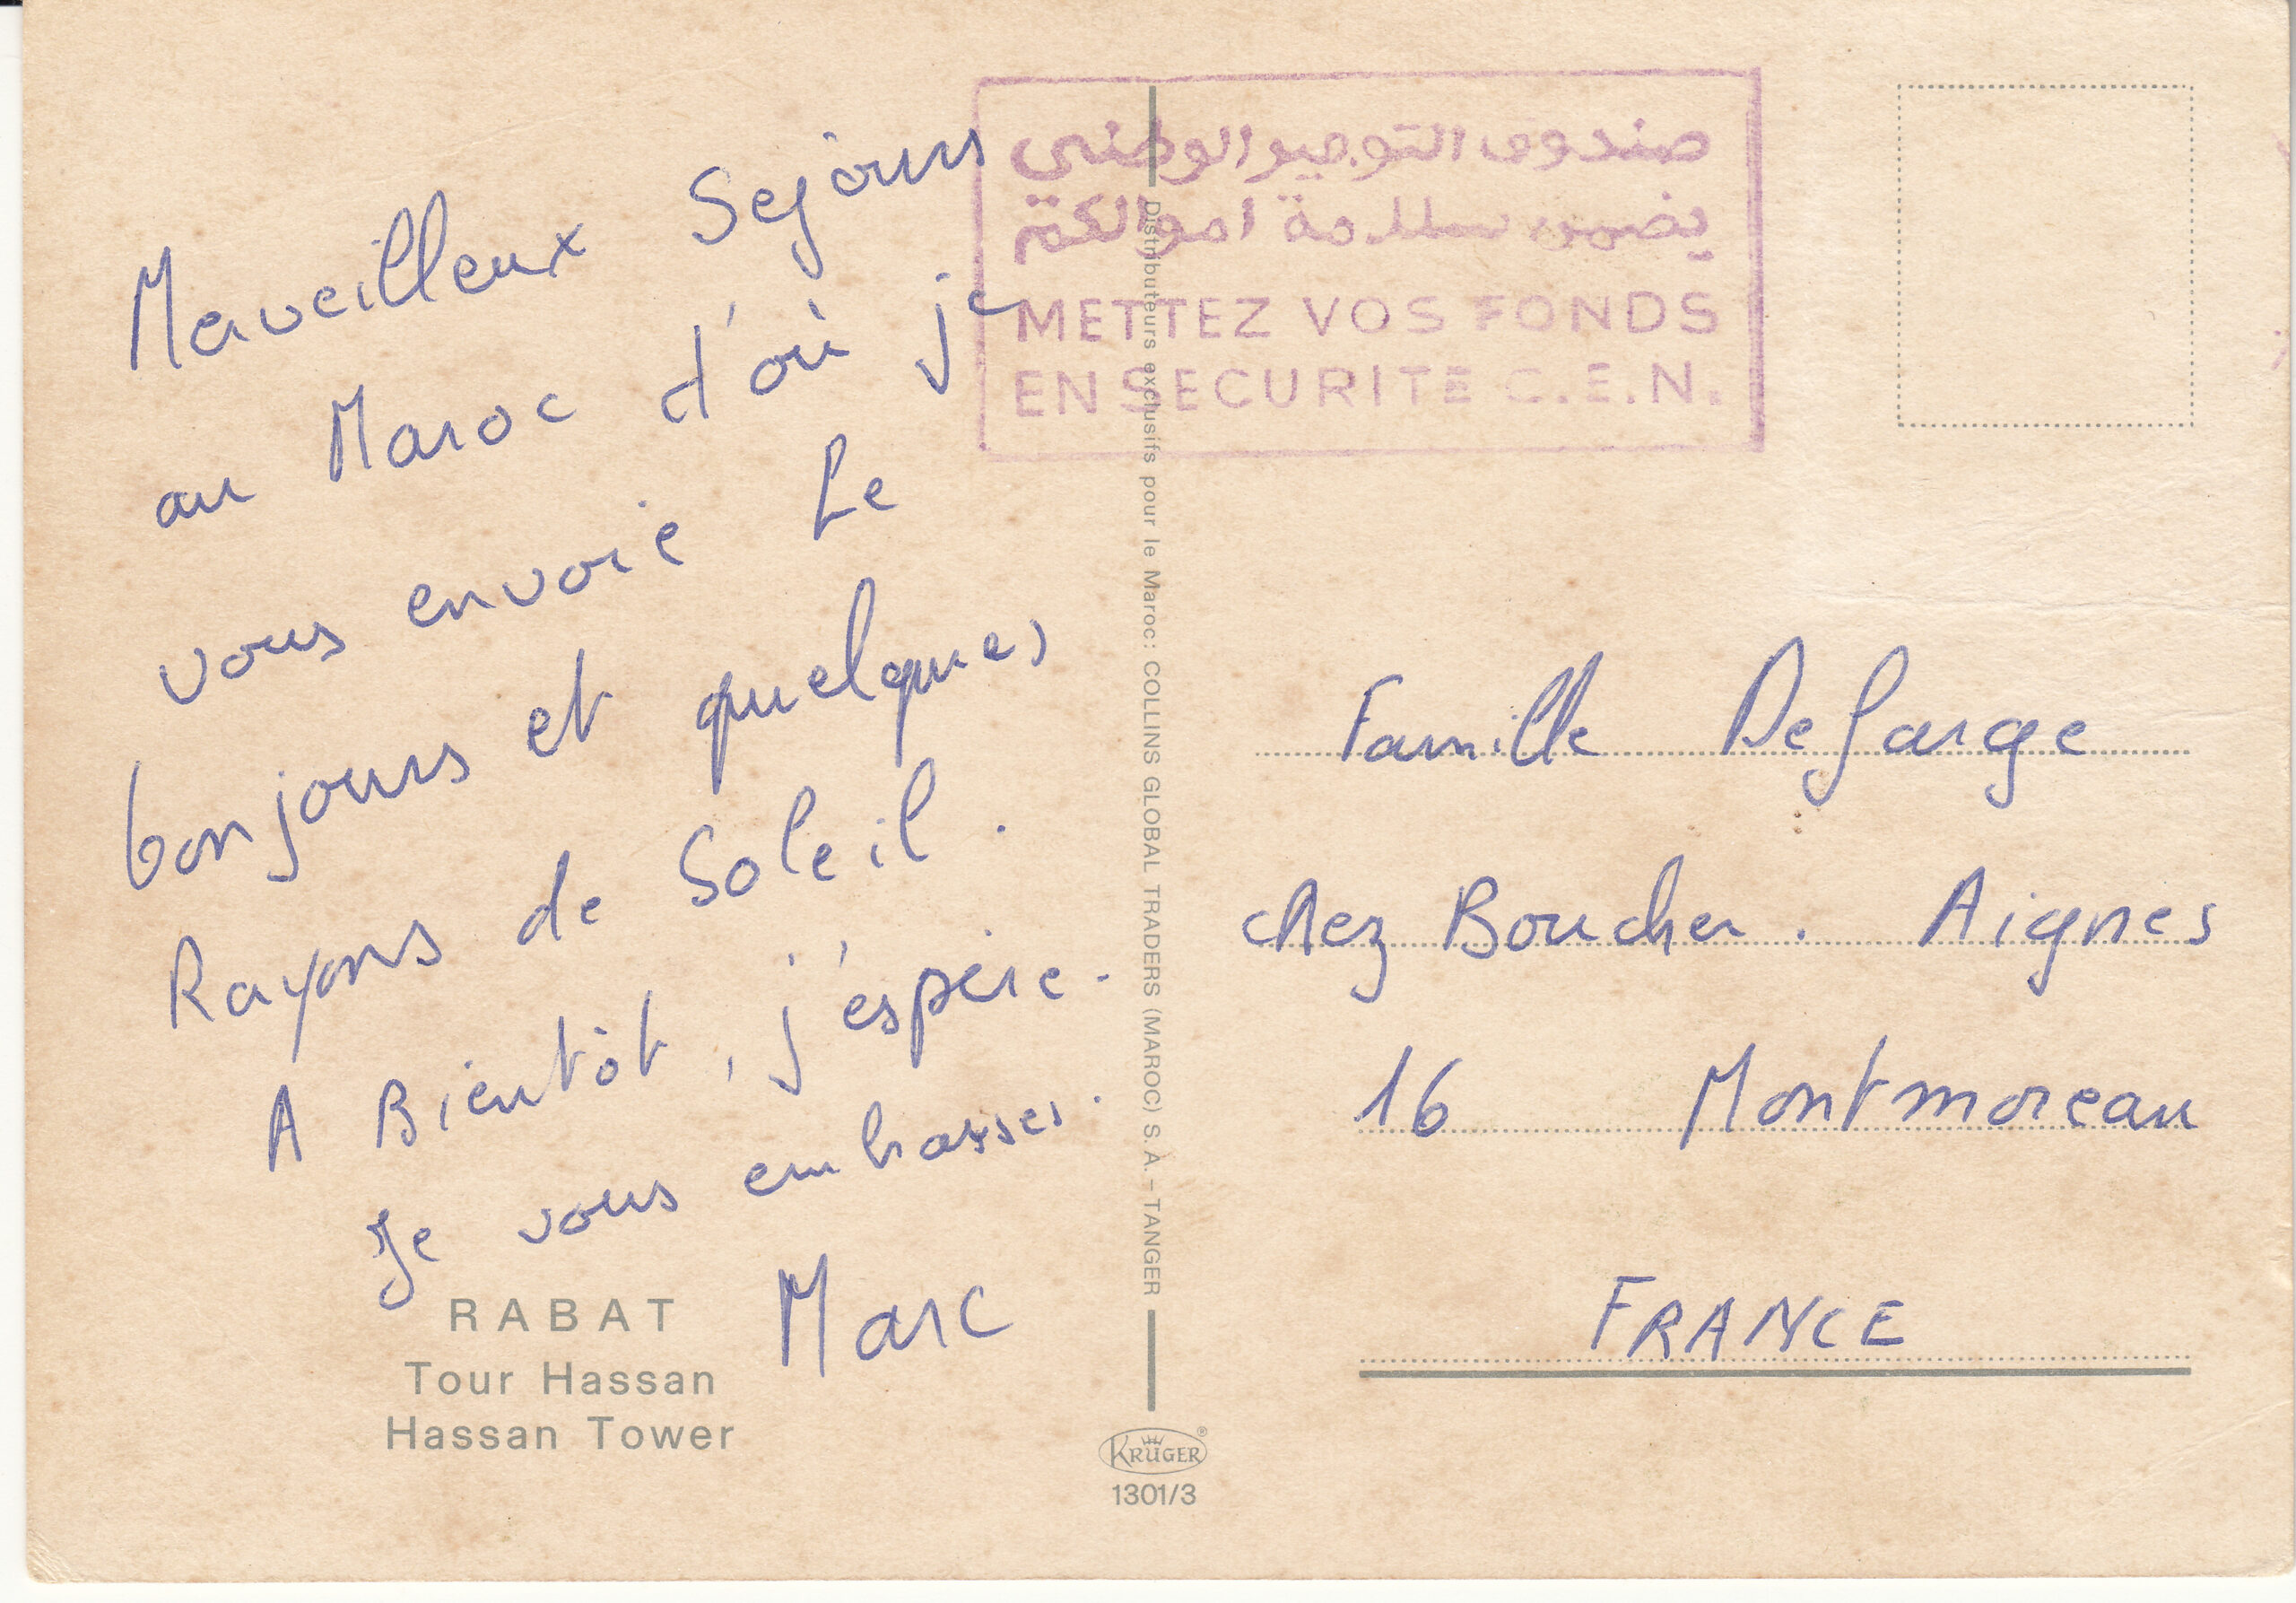 Merveilleux Sejours
au Maroc d'où je
vous envoie Le
bonjours et quelques
Rayons de Soleil.
A Bientôt, j'espère.
Je vous embrasses.
Marc
RABAT
Tour Hassan
Hassan Tower
صندوق التوفير الوطني
يضمن سلامة اموالكم
METTEZ VOS FONDS
EN SECURITE C.E.N.
Distributeurs exclusifs pour le Maroc: COLLINS GLOBAL TRADERS (MAROC) S.A. – TANGER
KRÜGER®
1301/3
Famille Defarge
chez Boucher. Aignes
16 Montmoreau
FRANCE